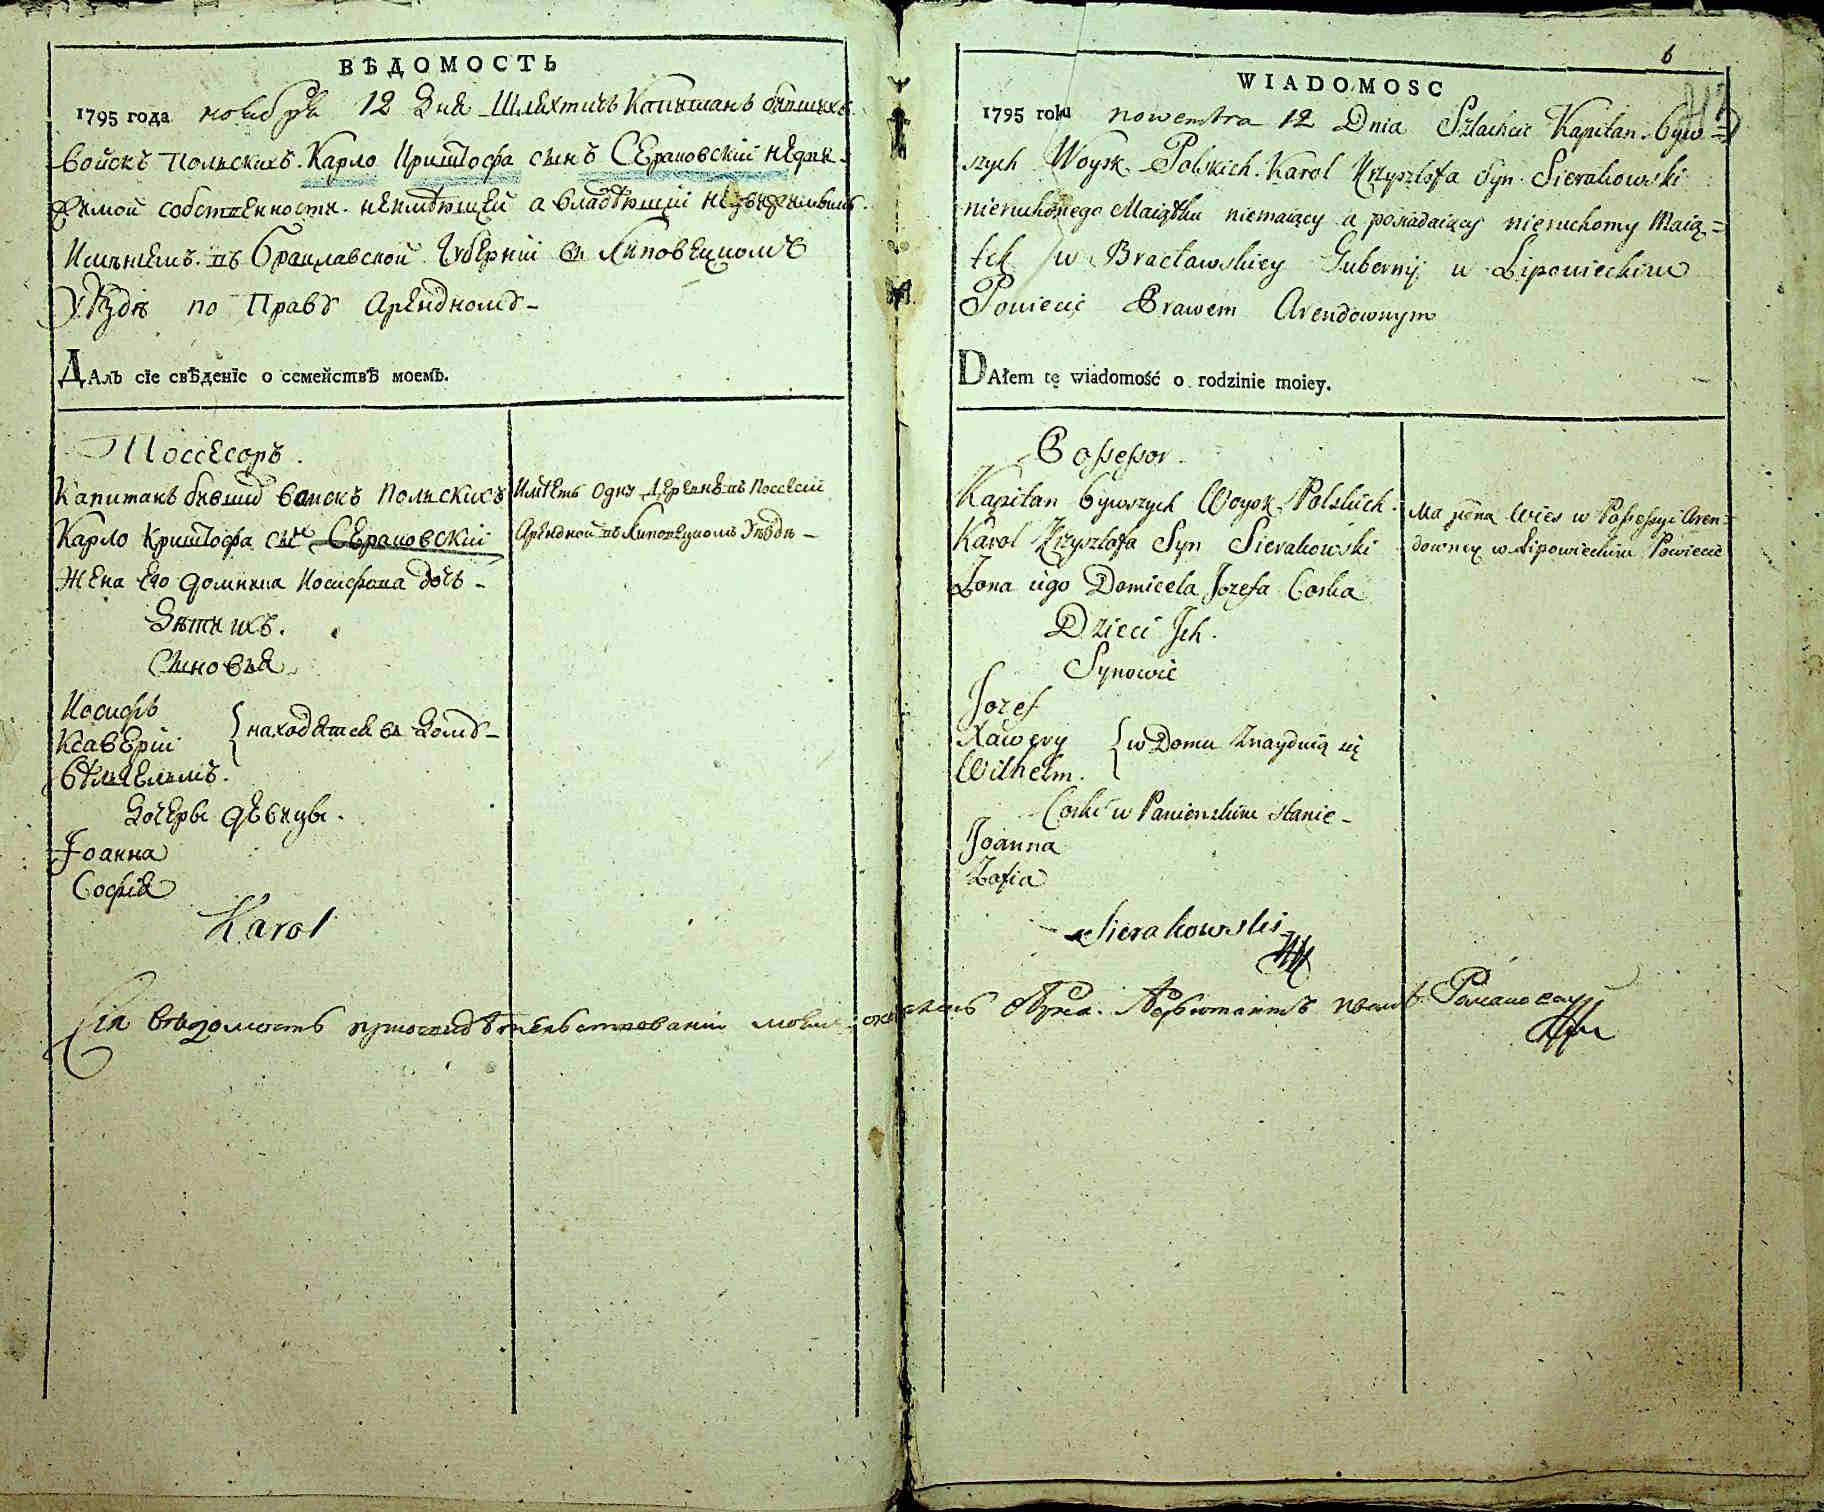 ВѢДОМОСТЬ
1795 года ноября 12 Дня Шляхтичъ Капитанъ бывшихъ
Войскъ Польскихъ. Карло Криштофа сынъ СЕраковскій НЕдви-
жимой собственности. нЕимѣющей а владѣющій
ИмѣнІЕмъ. въ Брацлавской ГубЕрніи въ ЛиповЕцкомъ
Уѣздѣ по Правѣ АрЕндномъ -
ДАлъ сїе свѣденїе о семействѣ моемъ.
ПоссЕсоръ.
Капитанъ бывши войскъ Польскихъ
Карло Криштофа сынъ СЕраковскій
ЖЕна Его Домицела Иосифова дочь -
Дѣти ихъ.
Сыновья
Иосифъ
КсавЕрій { находятся въ Домѣ -
ВѣльгЕльмъ.
ДочЕры дѢвицы.
Іоанна
Софія
ИмѣЕтъ Одну ДЕрЕвнЕ въ ПоссЕсіи
АрЕндной въ ЛиповЕцкомъ Уѣздѣ -
Karol
WIADOMOSC
6
1795 roku nowembra 12 Dnia Szlachcic Kapitan byw=
szych Woysk Polskich. Karol Krzysztofa Syn Sierakowski
nieruchomego Maiątku niemaiący a posiadaiący nieruchomy Maią=
tek w Bracławskiey Gubernij w Lipowieckim
Powiecie Prawem Arendownym
DAłem tę wiadomość o rodzinie moiey.
Possessor.
Kapitan bywszych Woysk Polskich.
Karol Krzysztofa Syn Sierakowski
Zona iego Domicela Jozefa Corka
Dzieci Jch.
Synowie
Jozef
Xawery { w Domu Znayduią się
Wilhelm.
Corki w Panienskim stanie -
Joanna
Zofia
Ma jedna Wies w Possessyi Aren=
downey w Lipowieckim Powiecie
Sierakowski
Сія вѣдомость при освидѣтельствованіи мною